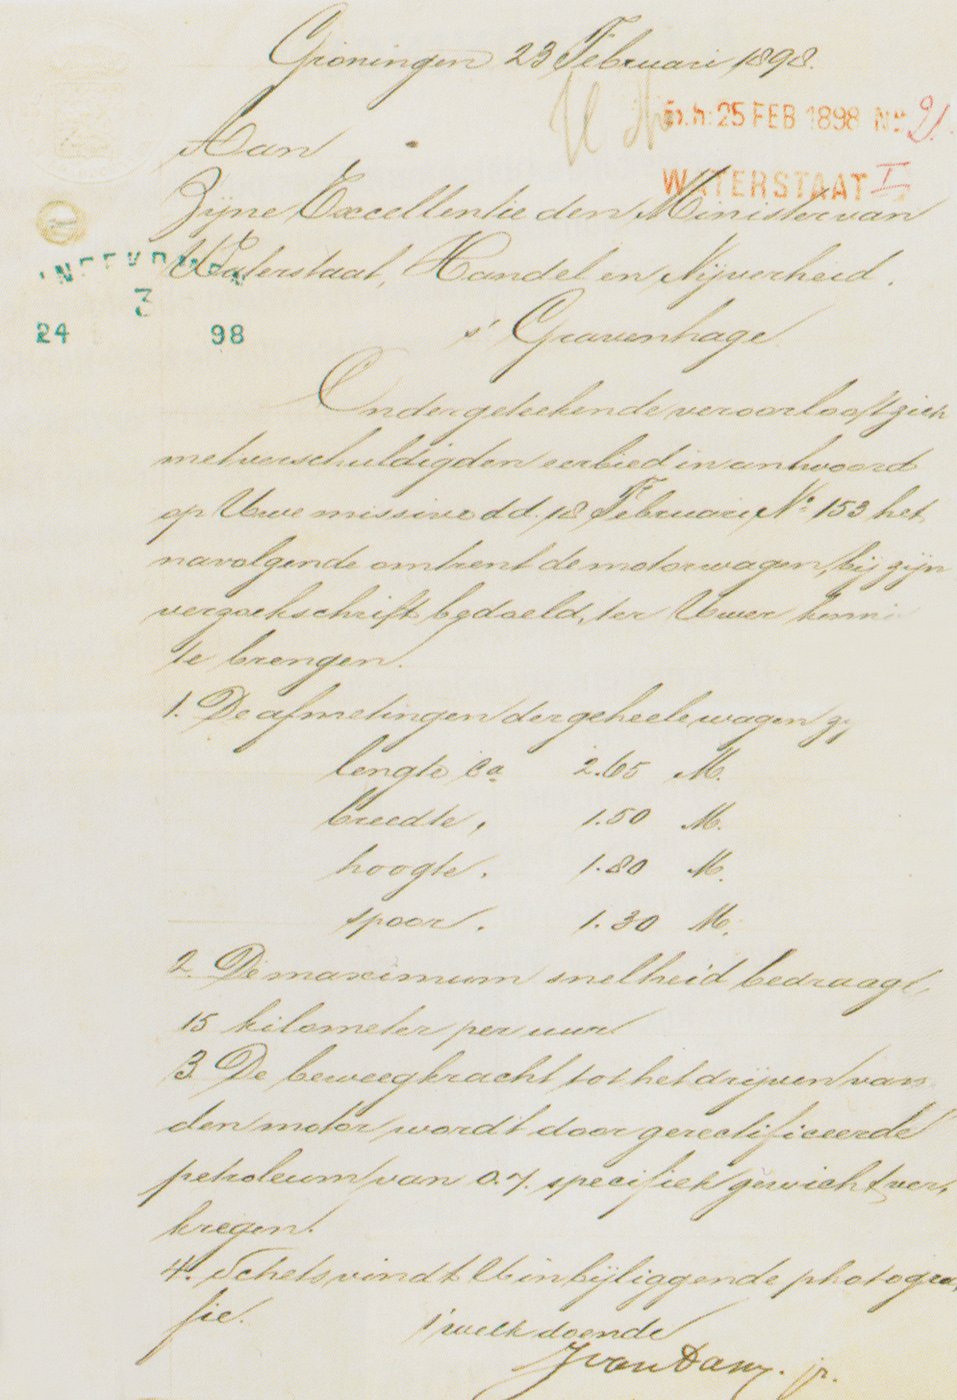 Groningen 23 Februari 1898.
Exh: 25 FEB 1898 No. 21.
WATERSTAAT I
Aan
Zijne Excellentie den Minister van
Waterstaat, Handel en Nijverheid.
24 3 98
s' Gravenhage
Ondergeteekende veroorlooft zich
met verschuldigden eerbied in antwoord
op Uwe missive dd. 18 Februari No. 153 het
navolgende omtrent de motorwagen, bij zijn
verzoekschrift bedoeld, ter Uwer
te brengen.
1. De afmetingen der geheele wagen
lengte ca 2.65 M.
breedte, 1.50 M.
hoogte. 1.80 M.
spoor. 1.30 M.
2. De maximum snelheid bedraagt
15 kilometer per uur
3. De beweegkracht tot het drijven van
den motor wordt door gerectificeerde
petroleum van 0.7. specifiek gewicht ver,
kregen.
4. Schets vindt U in bijliggende photogra,
fie.
t' welk doende
J van Dam. jr.